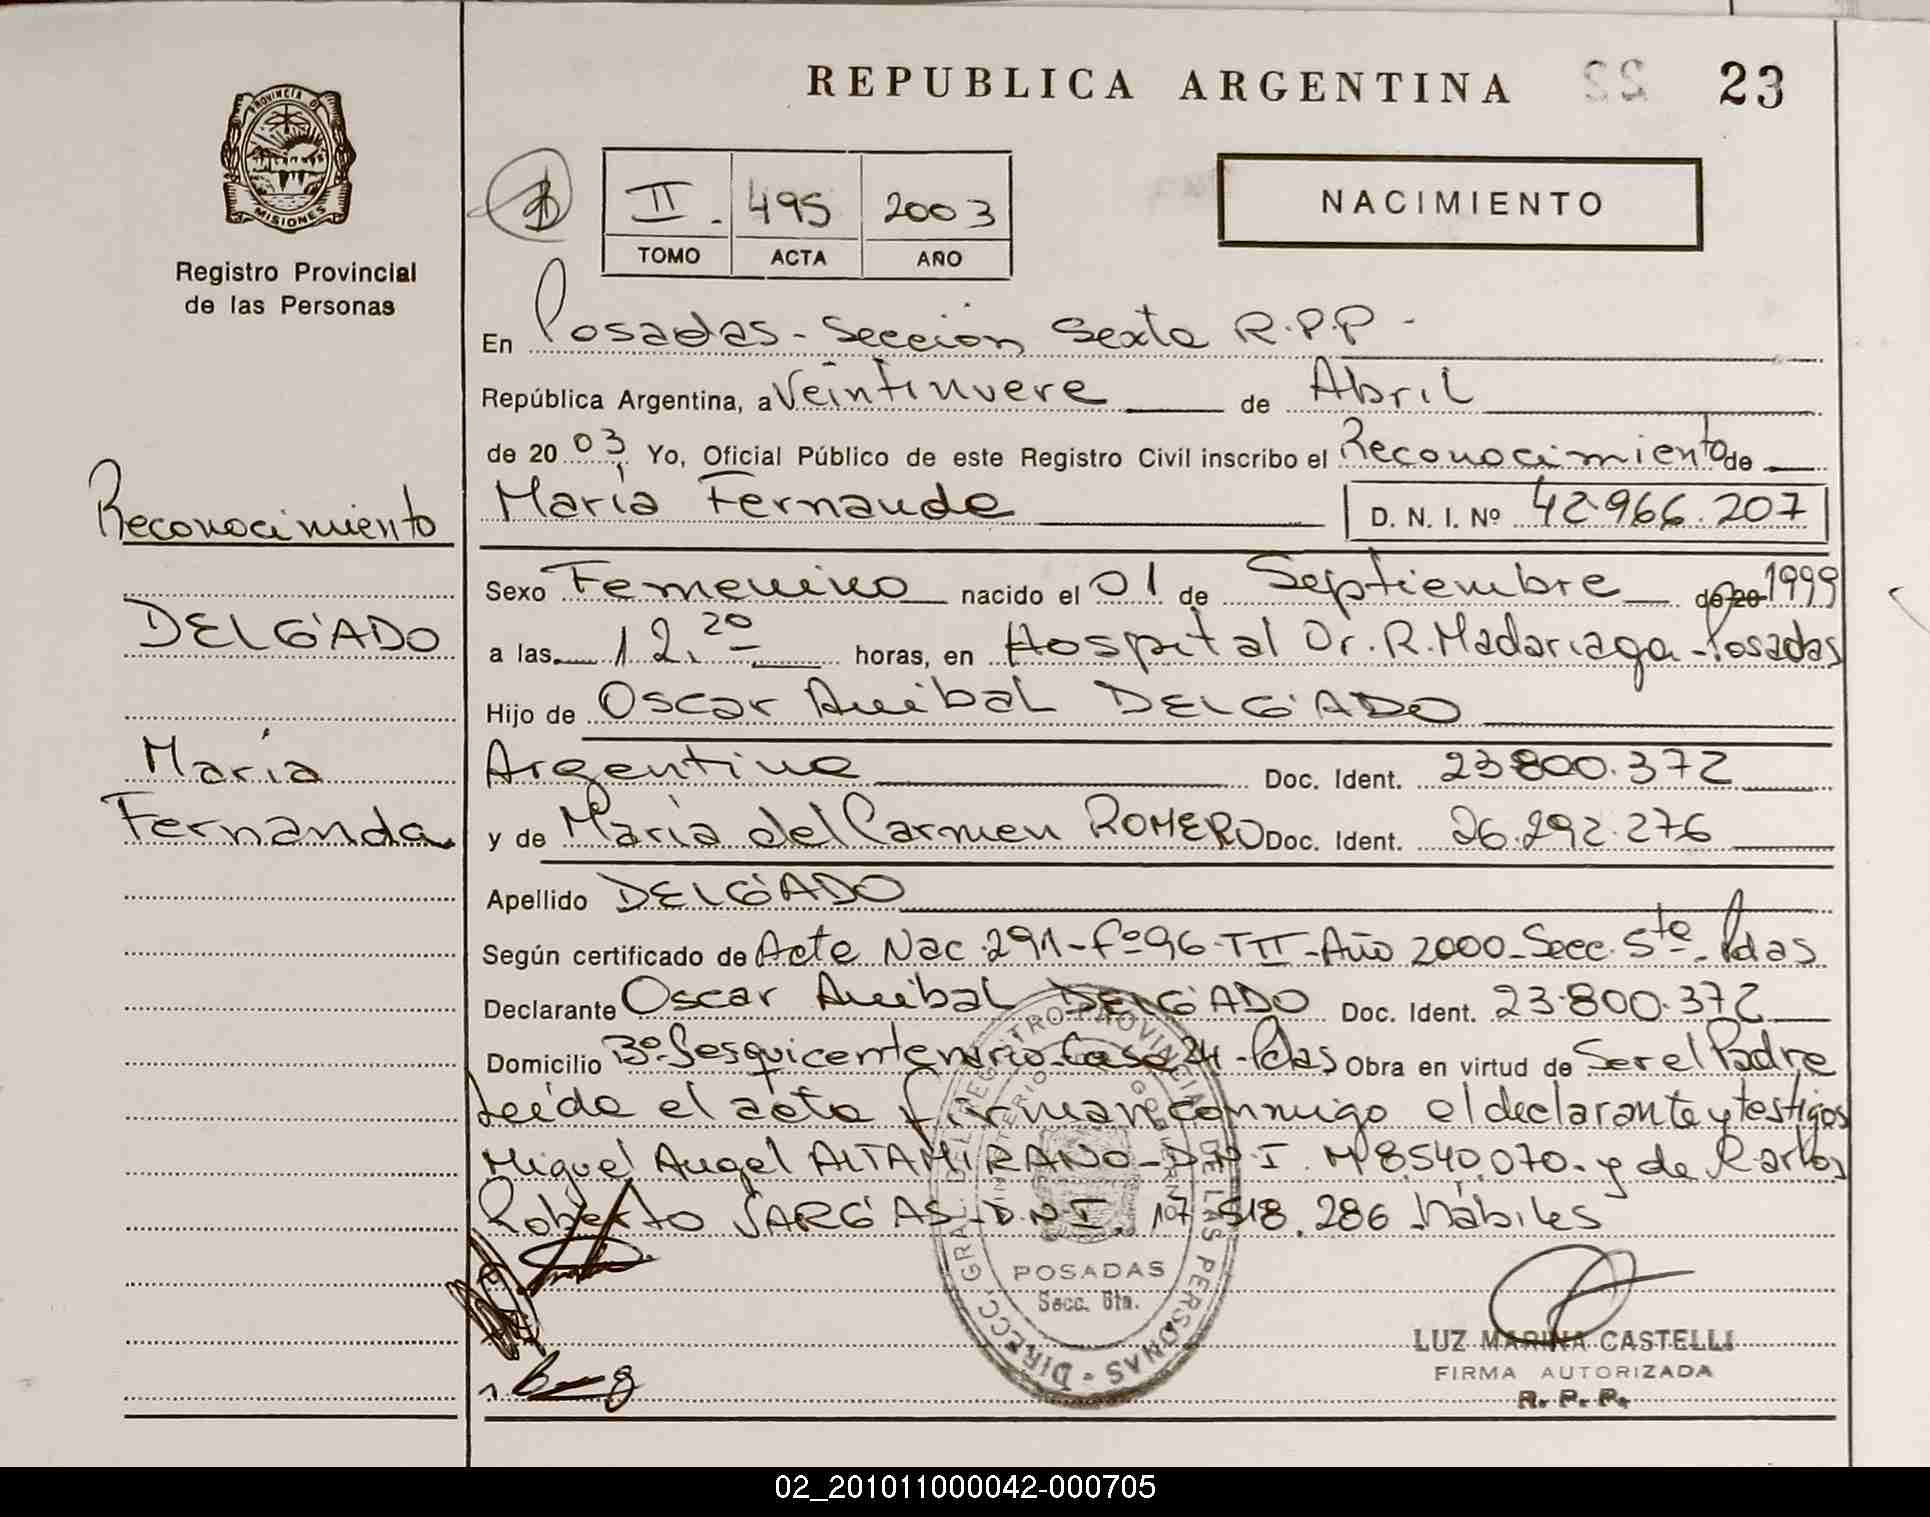 REPUBLICA ARGENTINA 22 23
PROVINCIA D
MISIONES
Registro Provincial
de las Personas
II. 495 2003
TOMO ACTA AÑO
NACIMIENTO
En Posadas - Sección Sexta R.P.P -
República Argentina, a Veintinueve de Abril
de 20 03 Yo, Oficial Público de este Registro Civil inscribo el Reconocimiento de
María Fernanda D. N. I. Nº 42.966.207
Reconocimiento
DELGADO
María
Fernanda
Sexo Femenino nacido el 01 de Septiembre de 20 1999
a las 12.20 horas, en Hospital Dr. R. Madariaga - Posadas
Hijo de Oscar Anibal DELGADO
Argentino Doc. Ident. 23.800.372
y de María del Carmen ROMERO Doc. Ident. 26.292.276
Apellido DELGADO
Según certificado de Acta Nac. 291 - Fº 96 - TII - Año 2000 - Secc. 5ta - Pdas
Declarante Oscar Anibal DELGADO Doc. Ident. 23.800.372
Domicilio Bº Sesquicentenario Casa 24 - Pdas Obra en virtud de Ser el Padre
Leída el acta firman conmigo el declarante y testigos
Miguel Angel ALTAMIRANO - D.N.I. M 8.540.070 - y de Carlos
Roberto VARGAS - D.N.I. 17.518.286 hábiles
DIRECC. GRAL. DEL REGISTRO PROVINCIAL DE LAS PERSONAS
MINISTERIO GOBIERNO
POSADAS
Secc. 6ta.
LUZ MARINA CASTELLI
FIRMA AUTORIZADA
R. P. P.
02_201011000042-000705